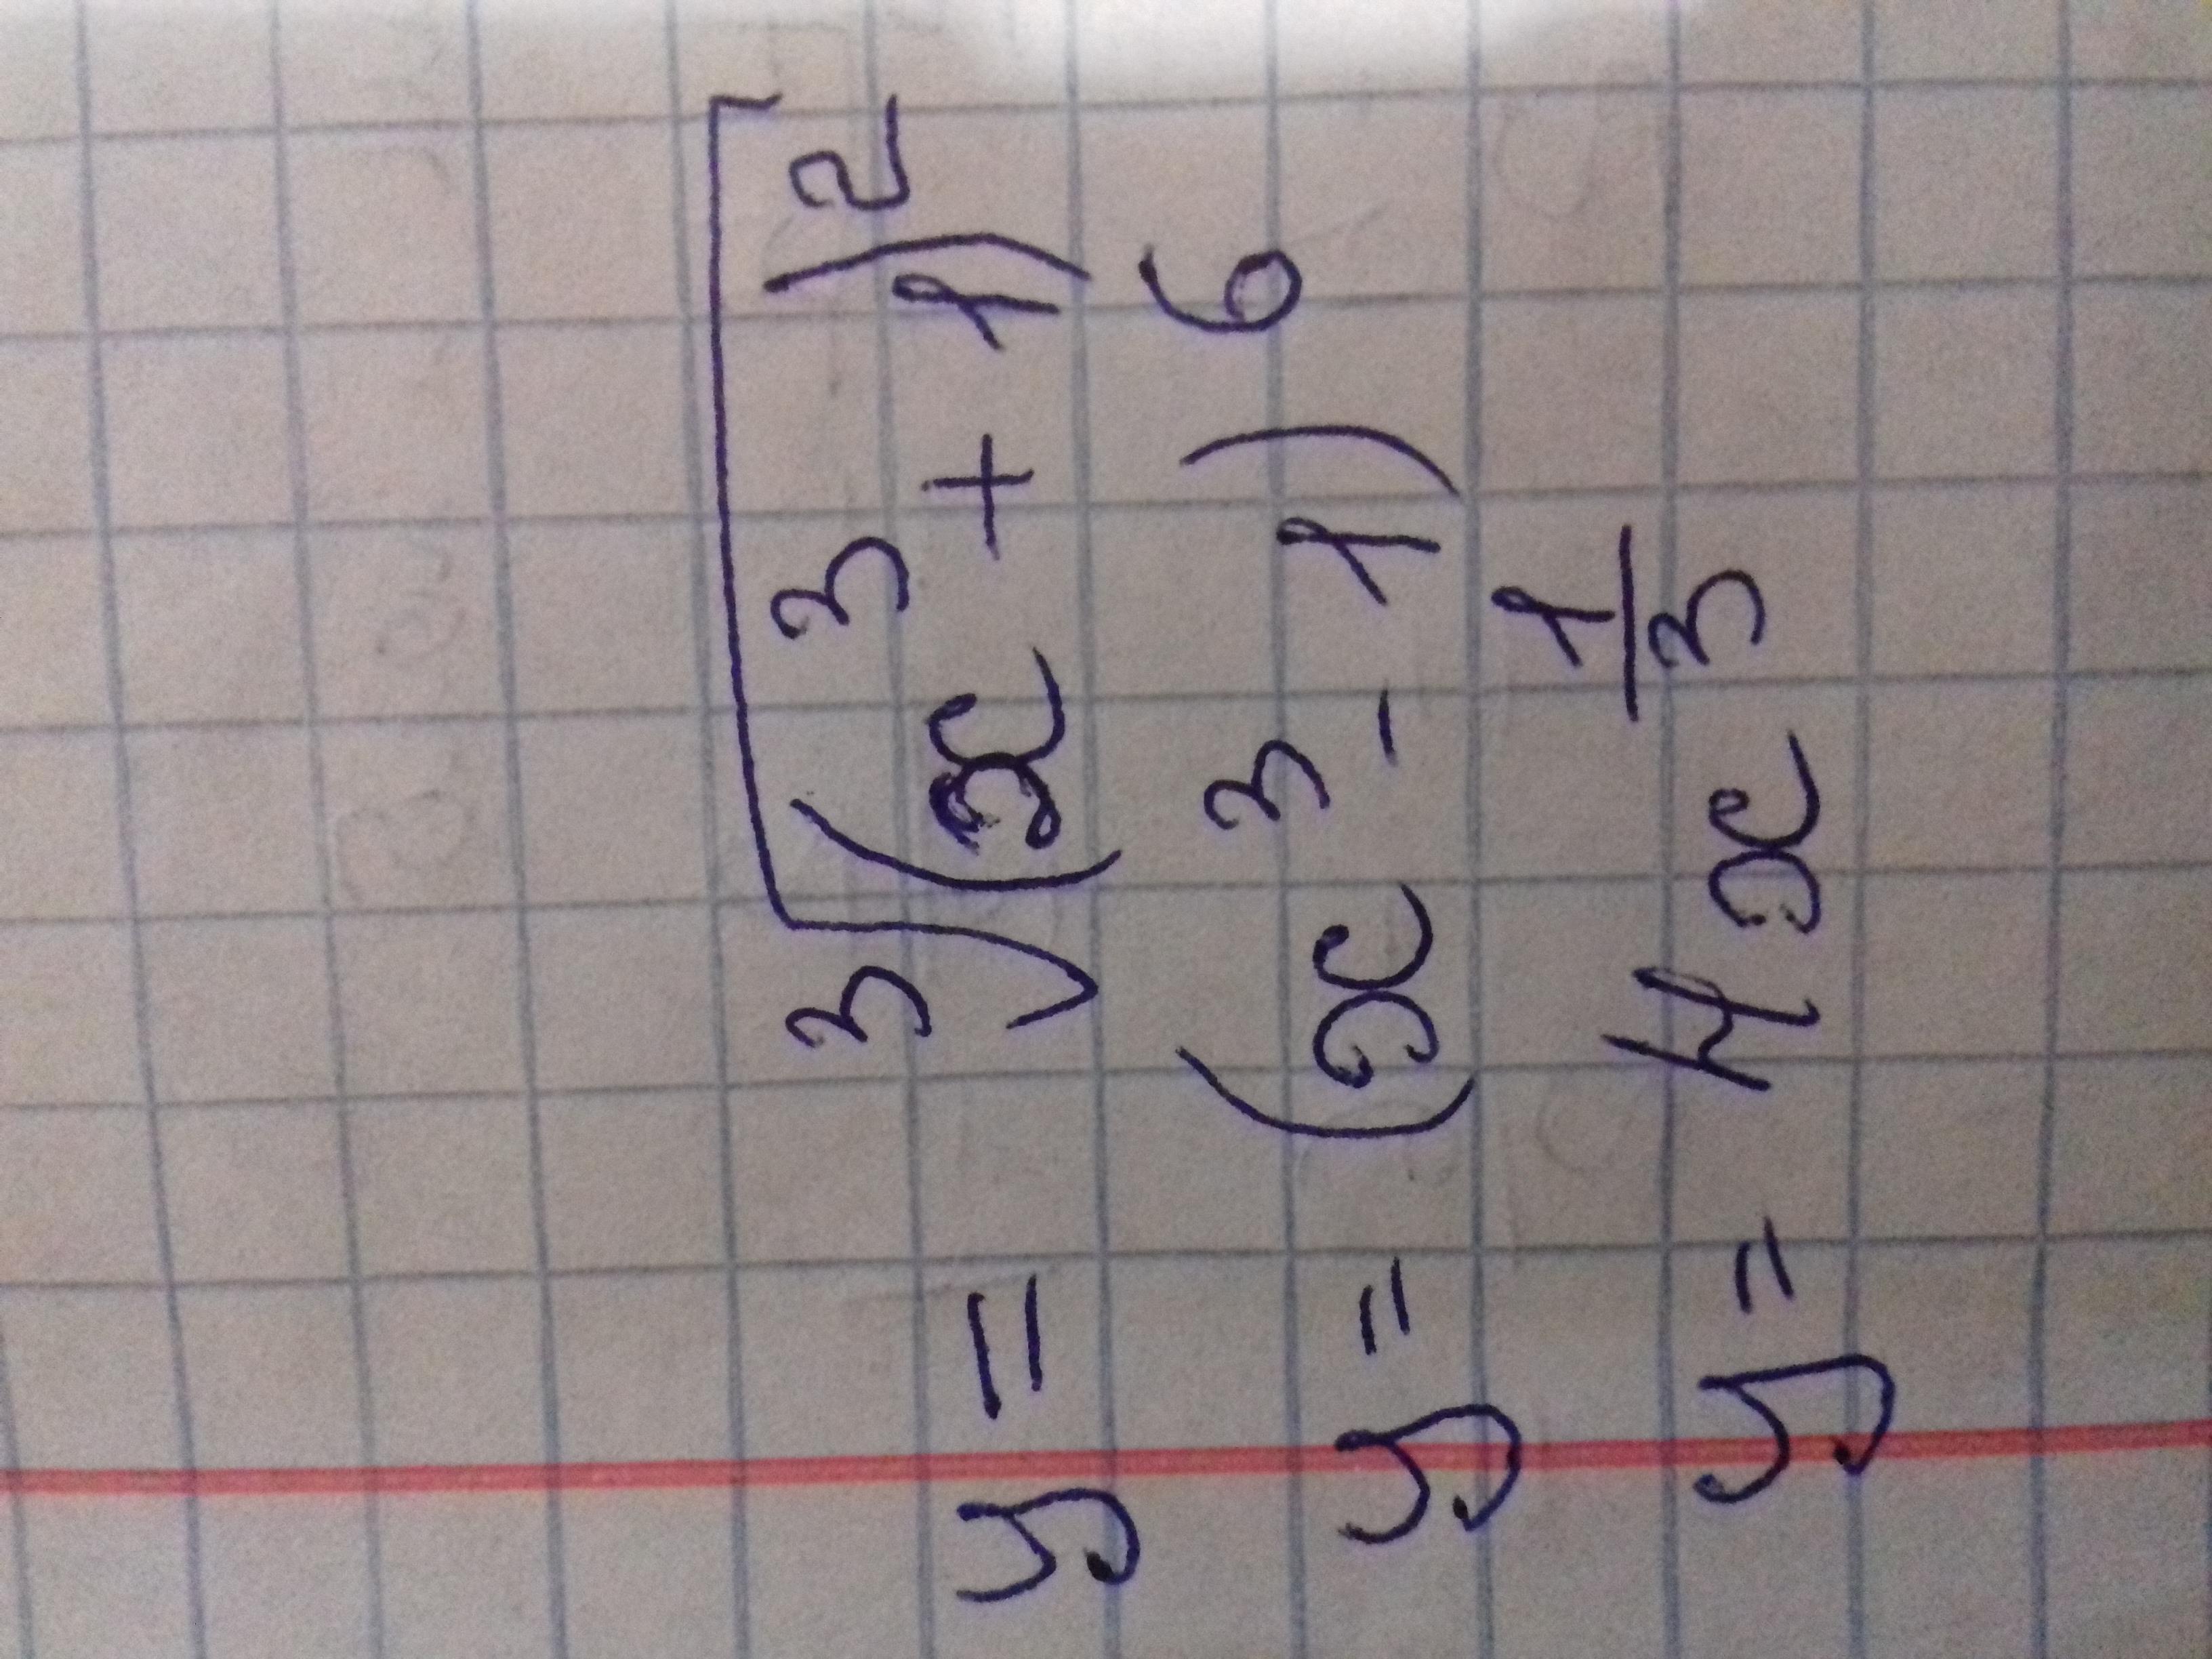 y = ∛(x³ + 1)²
y = (x³ - 1)⁶
y = 4x^(1/3)